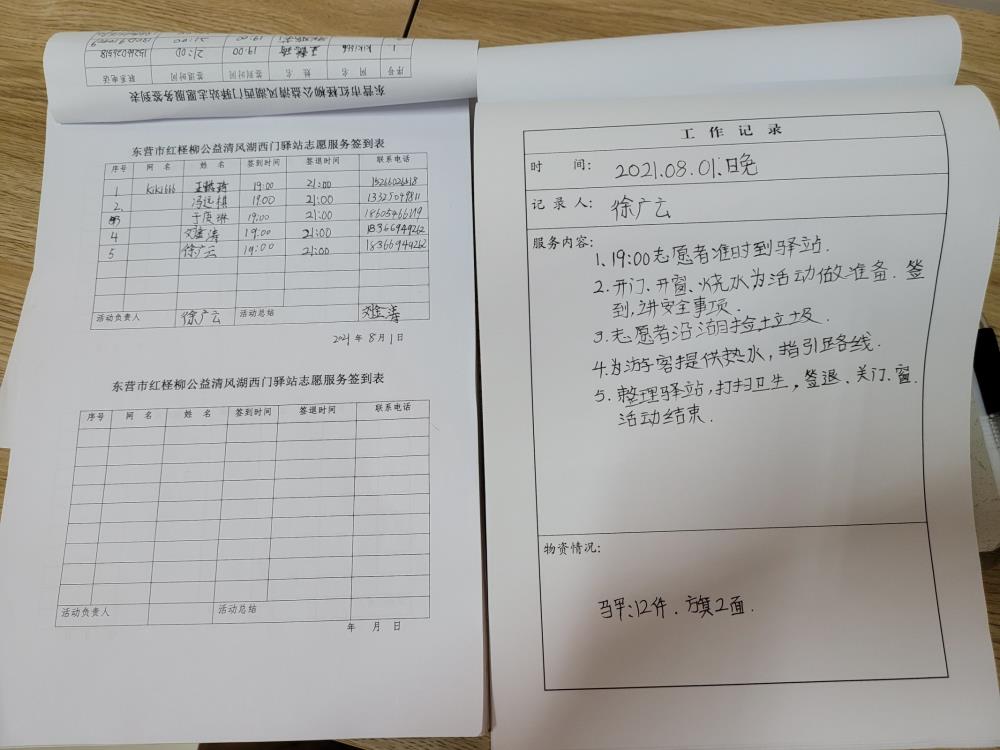 东营市红柽柳公益清风湖西门驿站志愿服务签到表
序号 网 名 姓 名 签到时间 签退时间 联系电话
1 kiki666 19:00 21:00 15266026618
1 kiki666 19:00 21:00
东营市红柽柳公益清风湖西门驿站志愿服务签到表
序号 网 名 姓 名 签到时间 签退时间 联系电话
2. 冯远棋 19:00 21:00
于庆琳 19:00 21:00
4 刘金涛 19:00 21:00 18366949262
5 徐广云 19:00 21:00 18366949262
活动负责人 徐广云 活动总结 刘金涛
2021年 8月1日
东营市红柽柳公益清风湖西门驿站志愿服务签到表
序号 网 名 姓 名 签到时间 签退时间 联系电话
活动负责人 活动总结
年 月 日
工作记录
时 间: 2021.08.01.日晚
记录人: 徐广云
服务内容:
1. 19:00志愿者准时到驿站.
2. 开门、开窗、烧水为活动做准备. 签
到,讲安全事项.
3. 志愿者沿湖捡垃圾.
4. 为游客提供热水,指引路线.
5. 整理驿站,打扫卫生,签退、关门、窗.
活动结束.
物资情况:
马甲:12件. 旗2面.